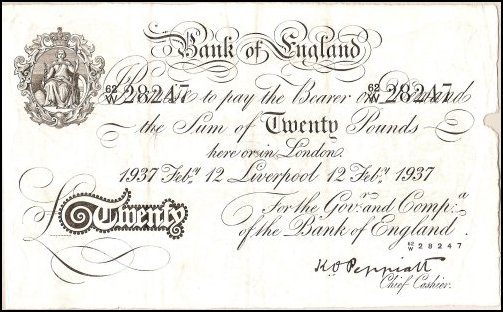 Bank of England
62/W 28247 62/W 28247
I Promise to pay the Bearer on Demand
the Sum of Twenty Pounds
here or in London.
1937 Feb.ʸ 12 Liverpool 12 Feb.ʸ 1937
For the Gov.ʳ and Comp.ᵃ
of the Bank of England.
£ Twenty
62/W 28247
K O Peppiatt
Chief Cashier.